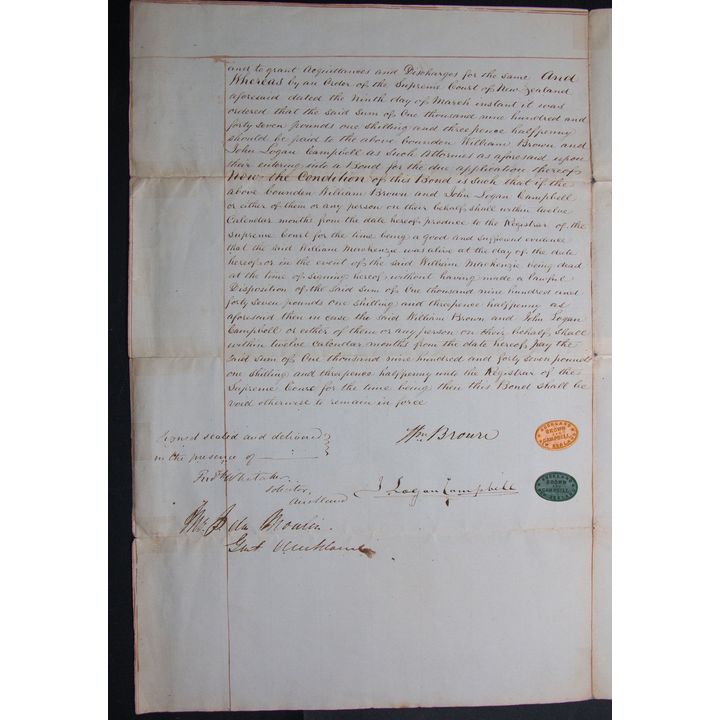 and to grant Acquittances and Discharges for the same And
Whereas by an Order of the Supreme Court of New Zealand
aforesaid dated the Ninth day of March instant it was
ordered that the said Sum of One thousand nine hundred and
forty seven pounds one shilling and threepence halfpenny
should be paid to the above bounden William Brown and
John Logan Campbell as Such Attornies as aforesaid upon
their entering into a Bond for the due application thereof
Now the Condition of this Bond is Such that if the
above bounden William Brown and John Logan Campbell
or either of them or any person on their behalf shall within twelve
Calendar months from the date hereof produce to the Registrar of the
Supreme Court for the time being a good and sufficient evidence
that the said William Mackenzie was alive at the day of the date
hereof or in the event of the said William Mackenzie being dead
at the time of signing hereof without having made a lawful
Disposition of the Said Sum of One thousand nine hundred and
forty seven pounds one shilling and threepence halfpenny as
aforesaid then in case the said William Brown and John Logan
Campbell or either of them or any person on their behalf shall
within twelve Calendar months from the date hereof pay the
Said Sum of One thousand nine hundred and forty seven pounds
one shilling and threepence halfpenny unto the Registrar of the
Supreme Court for the time being then this Bond shall be
void otherwise to remain in force
Signed sealed and delivered
in the presence of
Wm Brown
AUCKLAND
BROWN
AND
CAMPBELL
NEW ZEALAND
Fredk Whitaker
Solicitor
Auckland
J Logan Campbell
AUCKLAND
BROWN
AND
CAMPBELL
NEW ZEALAND
Moulin
Auckland